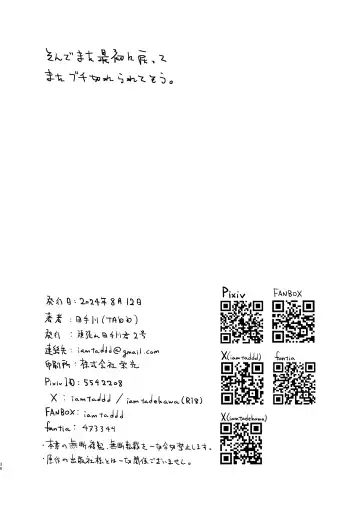 そんでまた最初に戻って
またブチ切れられてそう。
発行日:2024年8月12日
著者:田手川(TADD)
発行:頑張れ田手川君2号
連絡先:iamtaddd@gmail.com
印刷所:株式会社栄光
Pixiv ID:5542208
X:iamtaddd / iamtadehawa(R18)
FANBOX:iamtaddd
fantia:473344
・本書の無断複製、無断転載を一切禁止します。
・原作の出版社様とは一切関係ございません。
Pixiv
FANBOX
X(iamtaddd)
fantia
X(iamtadehawa)